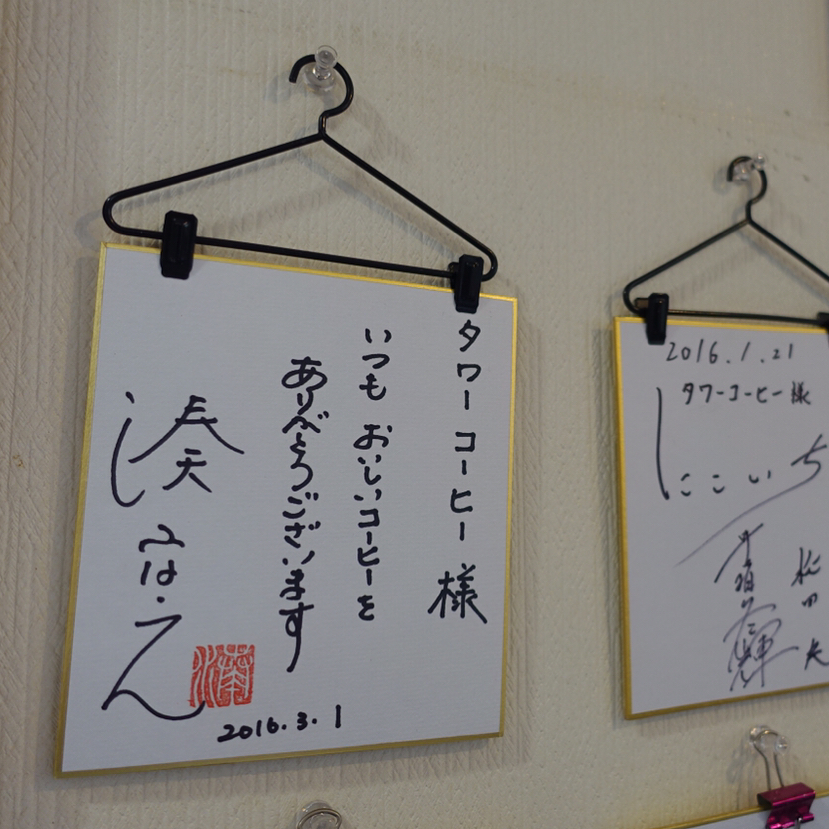 タワーコーヒー様
いつもおいしいコーヒーを
ありがとうございます
湊
2016.3.1
2016.1.21
タワーコーヒー様
にこいち
松田